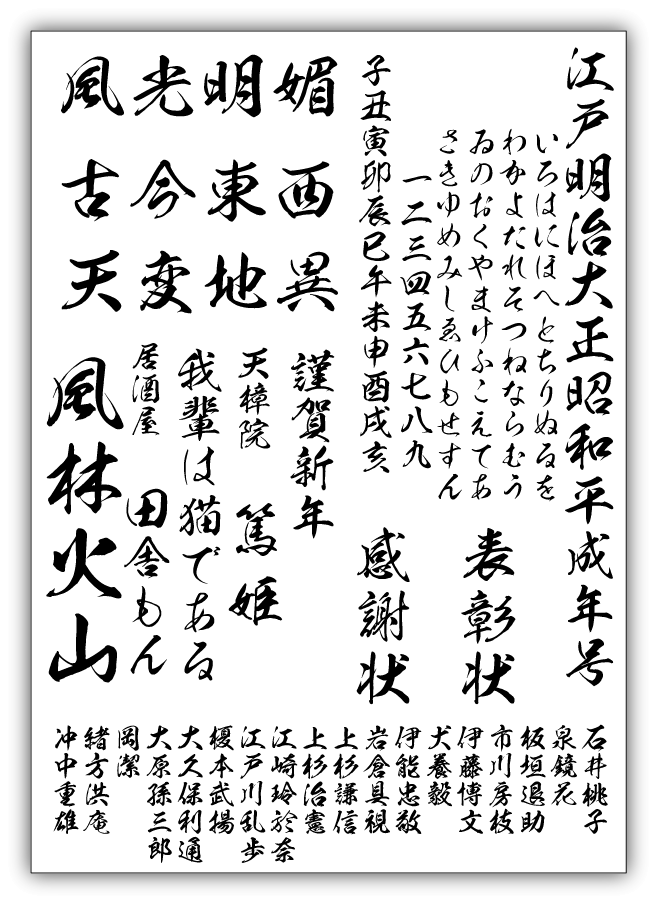 江戸明治大正昭和平成年号
いろはにほへとちりぬるを
わかよたれそつねならむう
ゐのおくやまけふこえてあ
さきゆめみしゑひもせすん
一二三四五六七八九
子丑寅卯辰巳午未申酉戌亥
表彰状
感謝状
媚西異
明東地
光今変
風古天
謹賀新年
天樟院
篤姫
我輩は猫である
居酒屋
田舎もん
風林火山
石井桃子
泉鏡花
板垣退助
市川房枝
伊藤博文
犬養毅
伊能忠敬
岩倉具視
上杉謙信
上杉治憲
江崎玲於奈
江戸川乱歩
榎本武揚
大久保利通
大原孫三郎
岡潔
緒方洪庵
沖中重雄